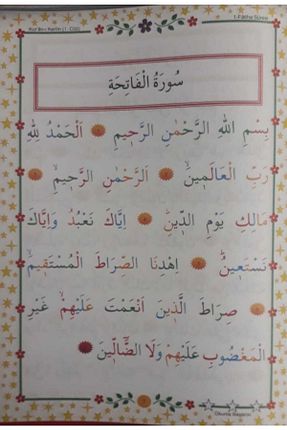 Kur'an-ı Kerim (1. Cüz)
1-Fatiha Suresi
سُورَةُ الْفَاتِحَةِ
بِسْمِ اللّٰهِ الرَّحْمٰنِ الرَّحٖيمِ اَلْحَمْدُ لِلّٰهِ
رَبِّ الْعَالَمٖينَۙ اَلرَّحْمٰنِ الرَّحٖيمِۙ
مَالِكِ يَوْمِ الدّٖينِؕ اِيَّاكَ نَعْبُدُ وَاِيَّاكَ
نَسْتَعٖينُؕ اِهْدِنَا الصِّرَاطَ الْمُسْتَقٖيمَۙ
صِرَاطَ الَّذٖينَ اَنْعَمْتَ عَلَيْهِمْۙ غَيْرِ
الْمَغْضُوبِ عَلَيْهِمْ وَلَا الضَّٓالّٖينَ